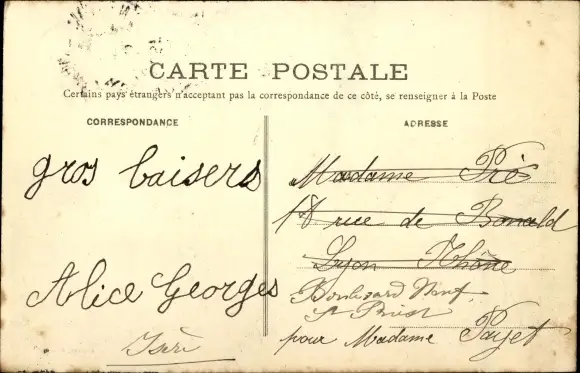 CARTE POSTALE
Certains pays étrangers n'acceptant pas la correspondance de ce côté, se renseigner à la Poste
CORRESPONDANCE
gros baisers
Alice Georges
Isère
ADRESSE
Madame Pré
18 rue de Bonald
Lyon Rhône
Boulevard Neuf
St Priest
pour Madame Payet